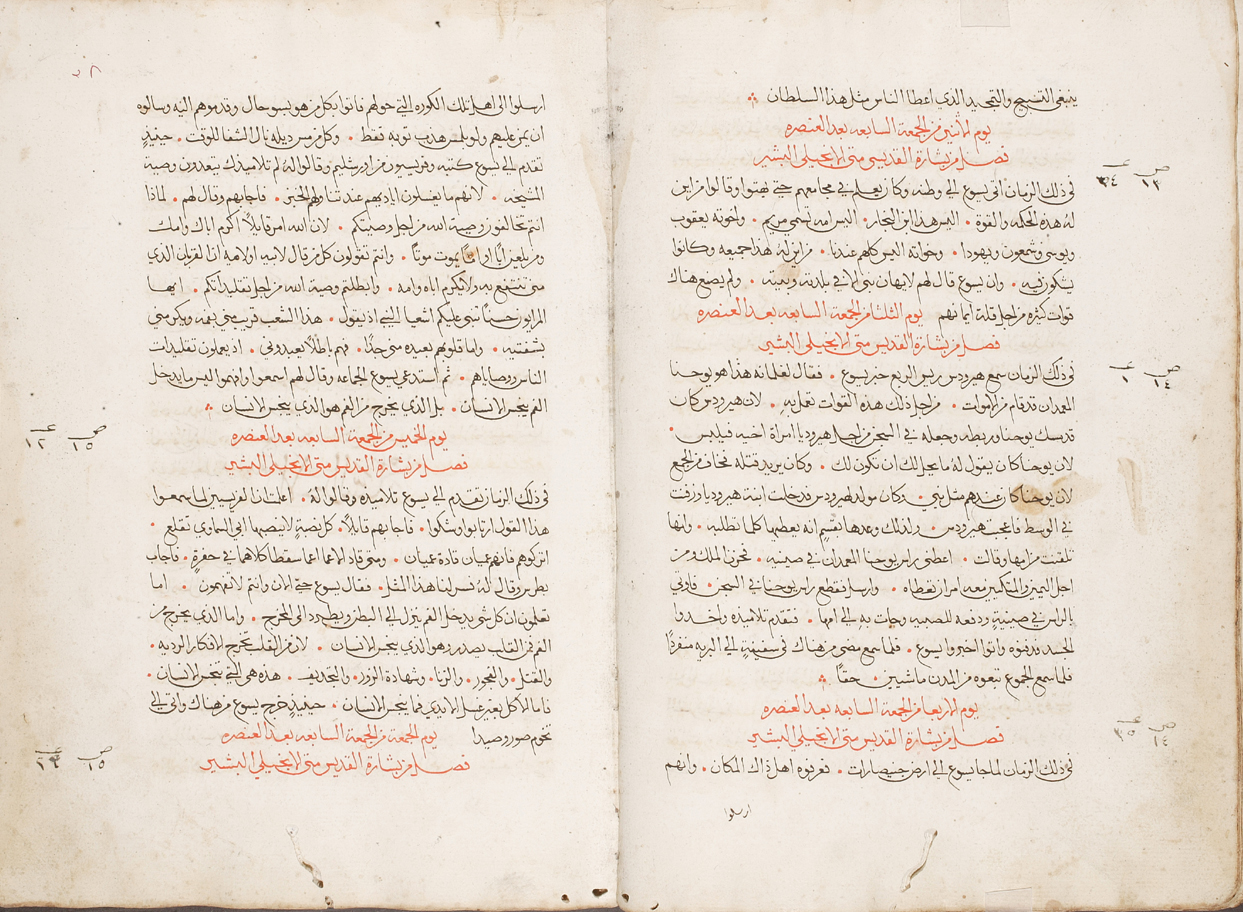 ينبغي التسبيح والتمجيد الذي اعطا الناس مثل هذا السلطان
يوم الاثنين من الجمعة السابعه بعد العنصره
فصل من بشارة القديس متى الانجيلي البشير
ص ١٣ عـ ٣٤
في ذلك الزمان اتى يسوع الى وطنه وكان يعلم في مجامعهم حتى بهتوا وقالوا من اين
له هذه الحكمه والقوة اليس هذا ابن النجار اليس امه تسمي مريم واخوته يعقوب
ويوسى وشمعون ويهودا وخواته اليس كلهم عندنا من اين له هذا جميعه وكانوا
يشكون فيه وان يسوع قال لهم لا يهان نبي الا في بلدته وبيته ولم يصنع هناك
قوات كثره من اجل قلة ايمانهم يوم الثلثا من الجمعة السابعه بعد العنصره
فصل من بشارة القديس متى الانجيلي البشير
ص ١٤ عـ ١
في ذلك الزمان سمع هيرودس ريس الربع خبر يسوع فقال لغلمانه هذا هو يوحنا
المعمدان قد قام من الاموات من اجل ذلك هذه القوات تعمل به لان هيرودس كان
قد مسك يوحنا وربطه وجعله في السجن من اجل هيروديا امراة اخيه فيلبس
لان يوحنا كان يقول له ما يحل لك ان تكون لك وكان يريد قتله فخاف من الجمع
لان يوحنا كان عندهم مثل نبي وكان مولد لهيرودس فدخلت ابنة هيروديا ورقت
في الوسط فاعجب هيرودس ولذلك وعدها بقسم انه يعطيها كلما تطلبه وانها
تلقنت من امها وقالت اعطني راس يوحنا المعمدان في صينيه فحزن الملك ومن
اجل اليمين والمتكيين معه امر ان تعطاه وارسل فقطع راس يوحنا في السجن فاوتي
بالراس في صينيةٍ ودفعه للصبيه وجات به الى امها فتقدم تلاميذه واخدوا
الجسد فدفنوه واتوا اخبروا يسوع فلما سمع مضى من هناك في سفينةٍ الى البريه منفردًا
فلما سمع الجموع تبعوه من المدن ماشيين حقًا
يوم الاربعا من الجمعة السابعه بعد العنصره
فصل من بشارة القديس متى الانجيلي البشير
ص ١٤ عـ ٣٥
في ذلك الزمان لما جا يسوع الى ارض جنيصارات فعرفوه اهل ذاك المكان وانهم
ارسلوا
ارسلوا الى اهل تلك الكوره التي حولهم فاتوا بكل من هو بسو حال وقدموهم اليه وسالوه
ان يمن عليهم ولو بلمس هدب ثوبه فقط وكل من مس ديله نال الشفا للوقت حينيذٍ
تقدم الى يسوع كتبه وفريسيون من اورشليم وقالوا له لم تلاميذك يتعدون وصية
المشيخه لانهم ما يغسلون اياديهم عند تناولهم الخبز فاجابهم وقال لهم لماذا
انتم تخالفون وصية الله من اجل وصيتكم لان الله امر قايلاً اكرم اباك وامك
ومن يلعن ابًا او امًا يموت موتًا وانتم تقولون كل من قال لابيه او لامه ان القربان الذي
مني تنتفع به ولا يكرم اباه وامه وابطلتم وصية الله من اجل تقليداتكم ايها
المراؤون حسنًا تنبي عليكم اشعيا النبي اذ يقول هذا الشعب قريب مني بفمه ويكرمني
بشفتيه واما قلوبهم بعيده مني جدًا فهم باطلاً يعبدوني اذ يعلمون تعليمات
الناس ووصاياهم ثم استدعى يسوع الجماعه وقال لهم اسمعوا وافهموا ليس ما يدخل
الفم ينجس الانسان بل الذي يخرج من الفم هو الذي ينجس الانسان
يوم الخميس من الجمعة السابعه بعد العنصره
ص ١٥ عـ ١٢
فصل من بشارة القديس متى الانجيلي البشير
في ذلك الزمان تقدم الى يسوع تلاميذه وقالوا له اعلمت ان الفريسيين لما سمعوا
هذا القول ارتابوا وشكوا فاجابهم قايلاً كل نصبةٍ لا ينصبها ابي السماوي تقلع
اتركوهم فانهم عميان قادة عميان ومتى قاد الاعما اعما سقطا كلاهما في حفرةٍ فاجاب
بطرس وقال له فسر لنا هذا المثل فقال يسوع حتى الان وانتم لا تفهمون اما
تعلمون ان كل شي يدخل الفم ينزل الى البطن ويطرد الى المخرج واما الذي يخرج من
الفم فمن القلب يصدر وهو الذي ينجس الانسان لان من القلب تخرج الافكار الرديه
والقتل والفجور والزنا وشهادة الزور والتجديف هذه هي التي تنجس الانسان
فاما الاكل بغير غسل الايدي فما ينجس الانسان حينيذٍ خرج يسوع من هناك واتى الى
تخوم صور وصيدا يوم الجمعة من الجمعة السابعه بعد العنصره
ص ١٥ عـ
فصل من بشارة القديس متى الانجيلي البشير